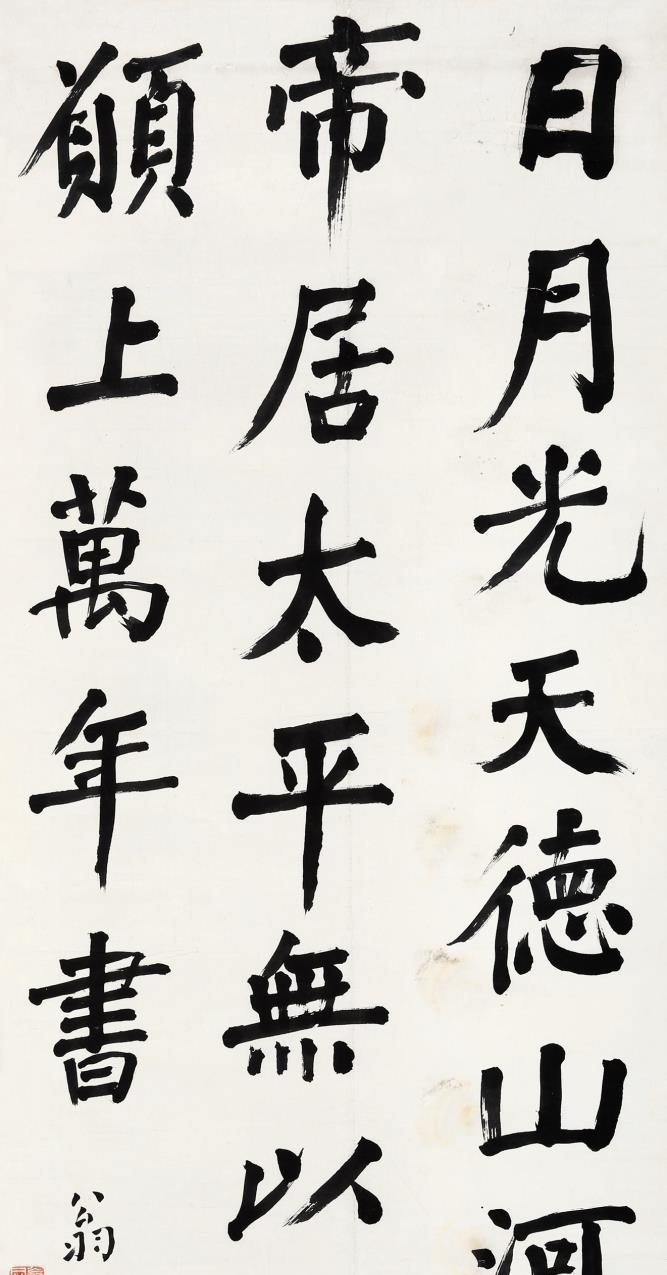 日月光天德山河
帝居太平無以
願上萬年書
翁